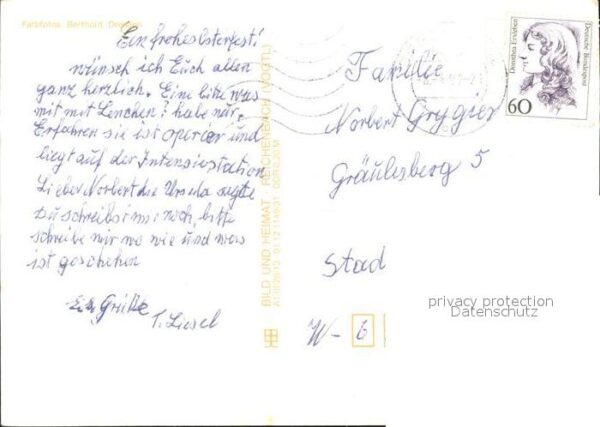 Farbfotos: Berthold, Dresden
Ein frohes Osterfest!
wünsch ich Euch allen
ganz herzlich. Eine bitte was
mit Lenchen? habe nur
Erfahren sie ist operier und
liegt auf der Intensivstation
Lieber Norbert die Ursula sagte
Du schreibst mir noch, bitte
schreibe mir wo wie und was
ist geschehen
Grüße
T. Liesel
BILD UND HEIMAT REICHENBACH (VOGTL)
Familie
Norbert Grygier
Gräulesberg 5
Stad
W- 6
Dorothea Erxleben
Deutsche Bundespost
60
privacy protection
Datenschutz